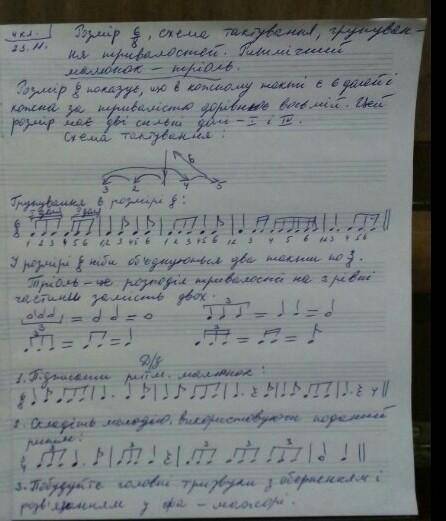 4 кл.
23.11.
Розмір 6/8, схема тактування, групуван-
ня тривалостей. Ритмічний
малюнок – тріоль.
Розмір 6/8 показує, що в кожному такті є 6 долей і
кожна за тривалістю дорівнює восьмій. Цей
розмір має дві сильні долі – I і IV.
Схема тактування:
6
3 2 1 4 5
Групування в розмірі 6/8:
6/8
1 2 3 4 5 6 12 3 45 6 1 2 3 4 5 6 12 3 4 5 6 123 4 5 6
У розмірі 6/8 ніби об'єднуються два такти по 3/8.
Тріоль – це розподіл тривалості на 3 рівні
частини замість двох.
3 = = 3 = =
3 = = 3 = =
Д/з
1. Підписати ритм. малюнок:
6/8
2. Складіть мелодію, використовуючи поданий
ритм:
3 3 3 3 3
3. Побудуйте головні тризвуки з оберненням і
розв'язанням у фа – мажорі.